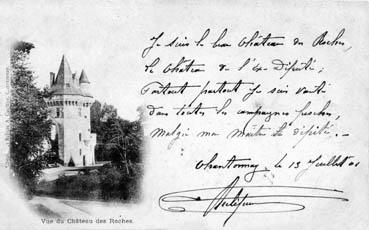 Je suis le beau Château des Roches,
le Château de l'ex-Député;
Partout partout je suis vanté
dans toutes les campagnes proches,
Malgré mon Maître le député.
Chantonnay, le 13 Juillet 01
Vue du Château des Roches.